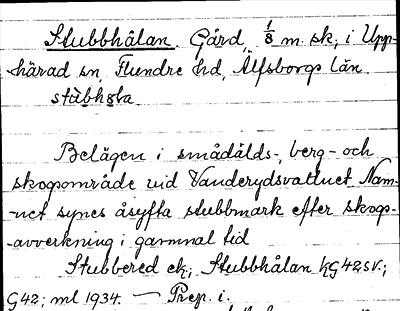 Stubbhålan. Gård, 1/8 m sk, i Upp-
härad sn, Flundre hd, Älfsborgs län.
stùbhɷla
Belägen i smådåls-, berg- och
skogsområde vid Vanderydsvattnet. Nam-
-net synes åsyfta stubbmark efter skogs-
-avverkning i gammal tid
Stubbered ek; Stubbhålan kG42SV.;
G42; ml 1934. — Prep. i.